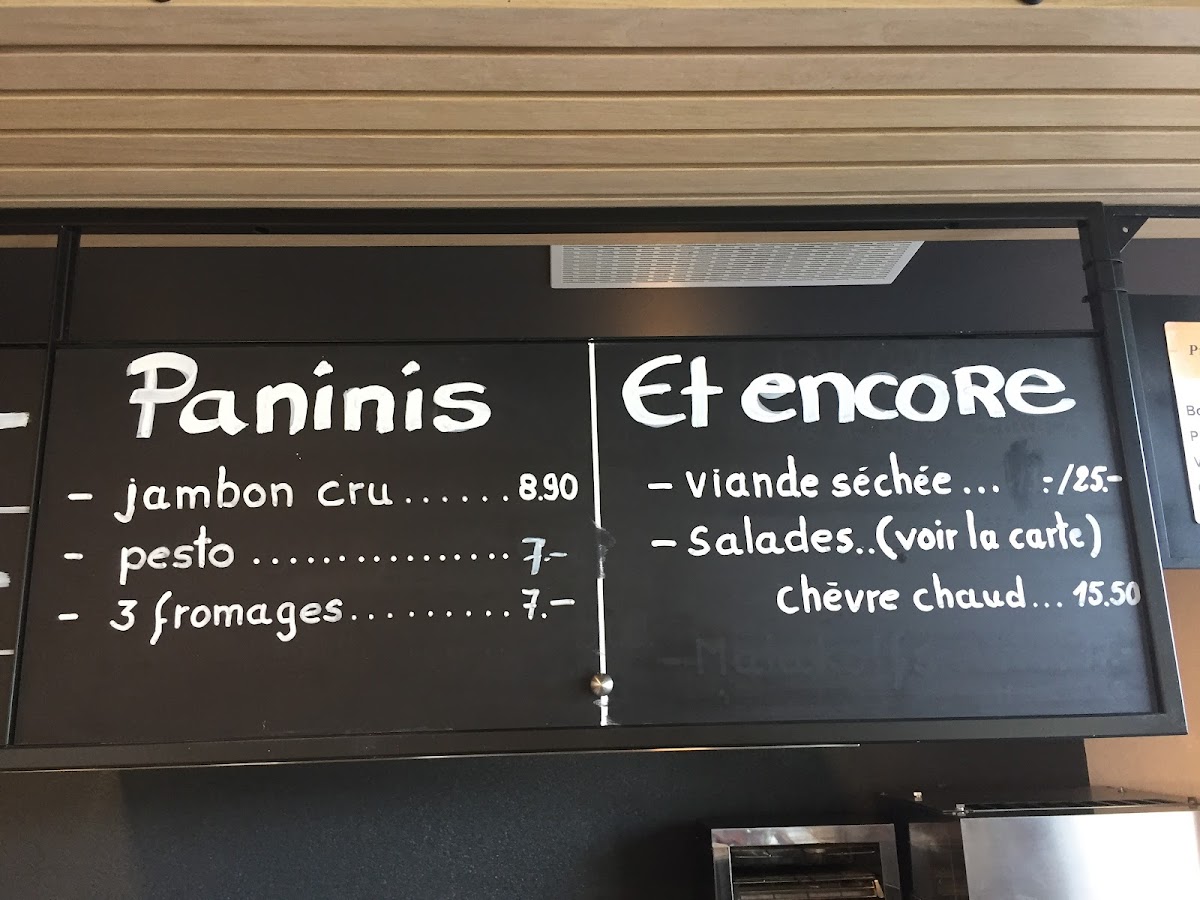 Paninis
- jambon cru......8.90
- pesto................7.-
- 3 fromages.........7.-
Et encore
- viande séchée... :-/25.-
- Salades..(voir la carte)
chèvre chaud...15.50